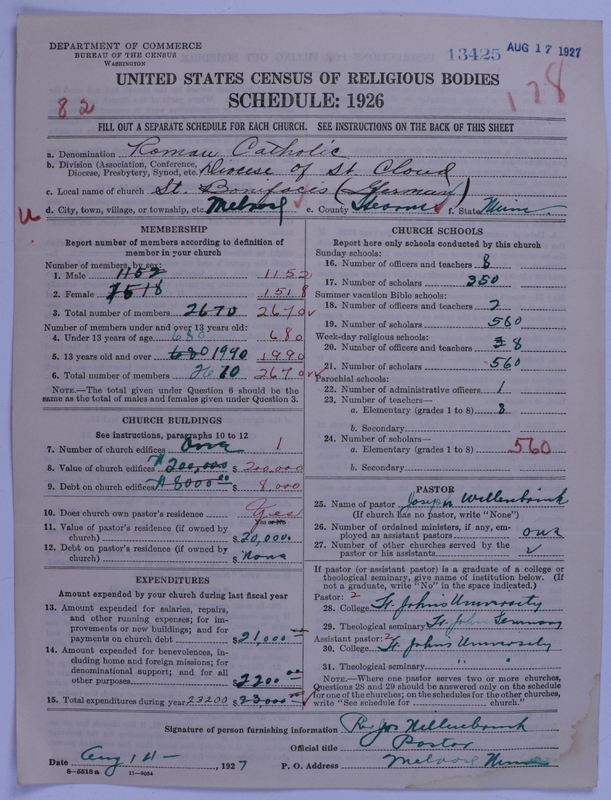 DEPARTMENT OF COMMERCE
BUREAU OF THE CENSUS
WASHINGTON
13425 AUG 17 1927
UNITED STATES CENSUS OF RELIGIOUS BODIES
SCHEDULE: 1926
82
178
FILL OUT A SEPARATE SCHEDULE FOR EACH CHURCH. SEE INSTRUCTIONS ON THE BACK OF THIS SHEET
a. Denomination Roman Catholic
b. Division (Association, Conference, Diocese, Presbytery, Synod, etc. Diocese of St. Cloud
c. Local name of church St. Bonifaces (German)
d. City, town, village, or township, etc. Melrose e. County Stearns f. State Minn.
MEMBERSHIP
Report number of members according to definition of member in your church
Number of members, by sex:
1. Male 1152 1152
2. Female 1518 1518
3. Total number of members 2670 2670
Number of members under and over 13 years old:
4. Under 13 years of age 680 680
5. 13 years old and over 680 1990 1990
6. Total number of members 2670 2670
NOTE.—The total given under Question 6 should be the same as the total of males and females given under Question 3.
CHURCH BUILDINGS
See instructions, paragraphs 10 to 12
7. Number of church edifices One 1
8. Value of church edifices $200,000 $ 200,000
9. Debt on church edifices $8000.00 $ 8,000
10. Does church own pastor's residence Yes
Yes or No
11. Value of pastor's residence (if owned by church) $20,000.
12. Debt on pastor's residence (if owned by church) $ None
EXPENDITURES
Amount expended by your church during last fiscal year
13. Amount expended for salaries, repairs, and other running expenses; for improvements or new buildings; and for payments on church debt $21,000
14. Amount expended for benevolences, including home and foreign missions; for denominational support; and for all other purposes $2200.00
15. Total expenditures during year 23200 $23,000
CHURCH SCHOOLS
Report here only schools conducted by this church
Sunday schools:
16. Number of officers and teachers 8
17. Number of scholars 350
Summer vacation Bible schools:
18. Number of officers and teachers 2
19. Number of scholars 560
Week-day religious schools:
20. Number of officers and teachers 8
21. Number of scholars 560
Parochial schools:
22. Number of administrative officers 1
23. Number of teachers—
a. Elementary (grades 1 to 8) 8
b. Secondary
24. Number of scholars—
a. Elementary (grades 1 to 8) 560
b. Secondary
PASTOR
25. Name of pastor Joseph Willenbrink
(If church has no pastor, write "None")
26. Number of ordained ministers, if any, employed as assistant pastors one
27. Number of other churches served by the pastor or his assistants
If pastor (or assistant pastor) is a graduate of a college or theological seminary, give name of institution below. (If not a graduate, write "No" in the space indicated.)
Pastor: 2
28. College St. John's University
29. Theological seminary St. John Seminary
Assistant pastor: 2
30. College St. John's University
31. Theological seminary " "
NOTE.—Where one pastor serves two or more churches, Questions 28 and 29 should be answered only on the schedule for one of the churches; on the schedules for the other churches, write "See schedule for ........ church."
Signature of person furnishing information Rev Jos Willenbrink
Official title Pastor
Date Aug 14 — , 1927 P. O. Address Melrose Minn
8—5518a 11—9034